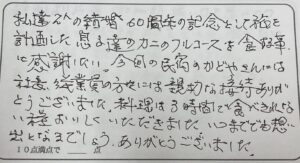 私達２人の結婚60周年の記念として旅を
計画した息子達のカニのフルコースを食べ
に感謝したい。今回の民宿かどやさんには
社長、従業員の方々には親切な接待ありが
とうございました。料理は3時間で食べきれない
い程おいしくいただきました。いつまでも想い
出となるでしょう。ありがとうございました。
10点満点で　点